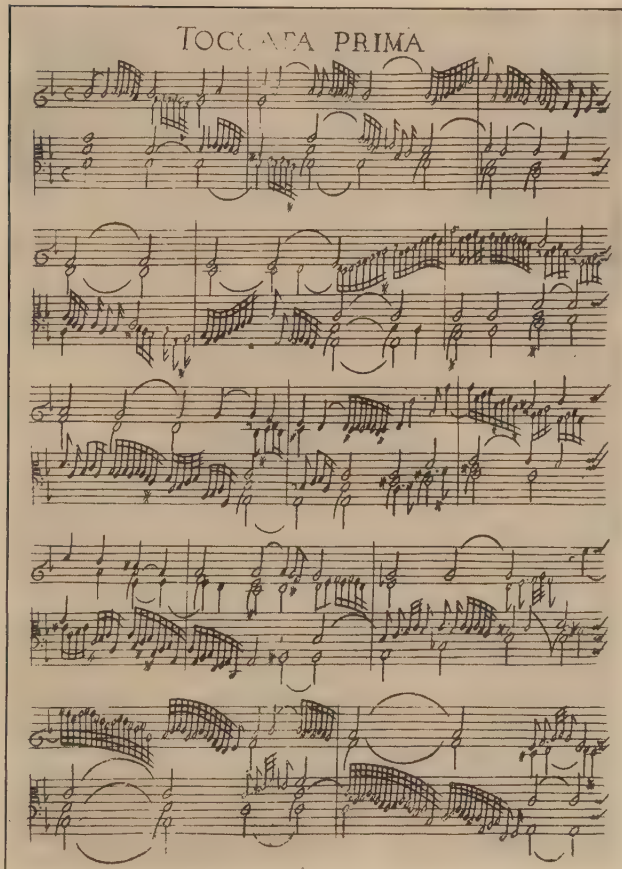 TOCCATA PRIMA